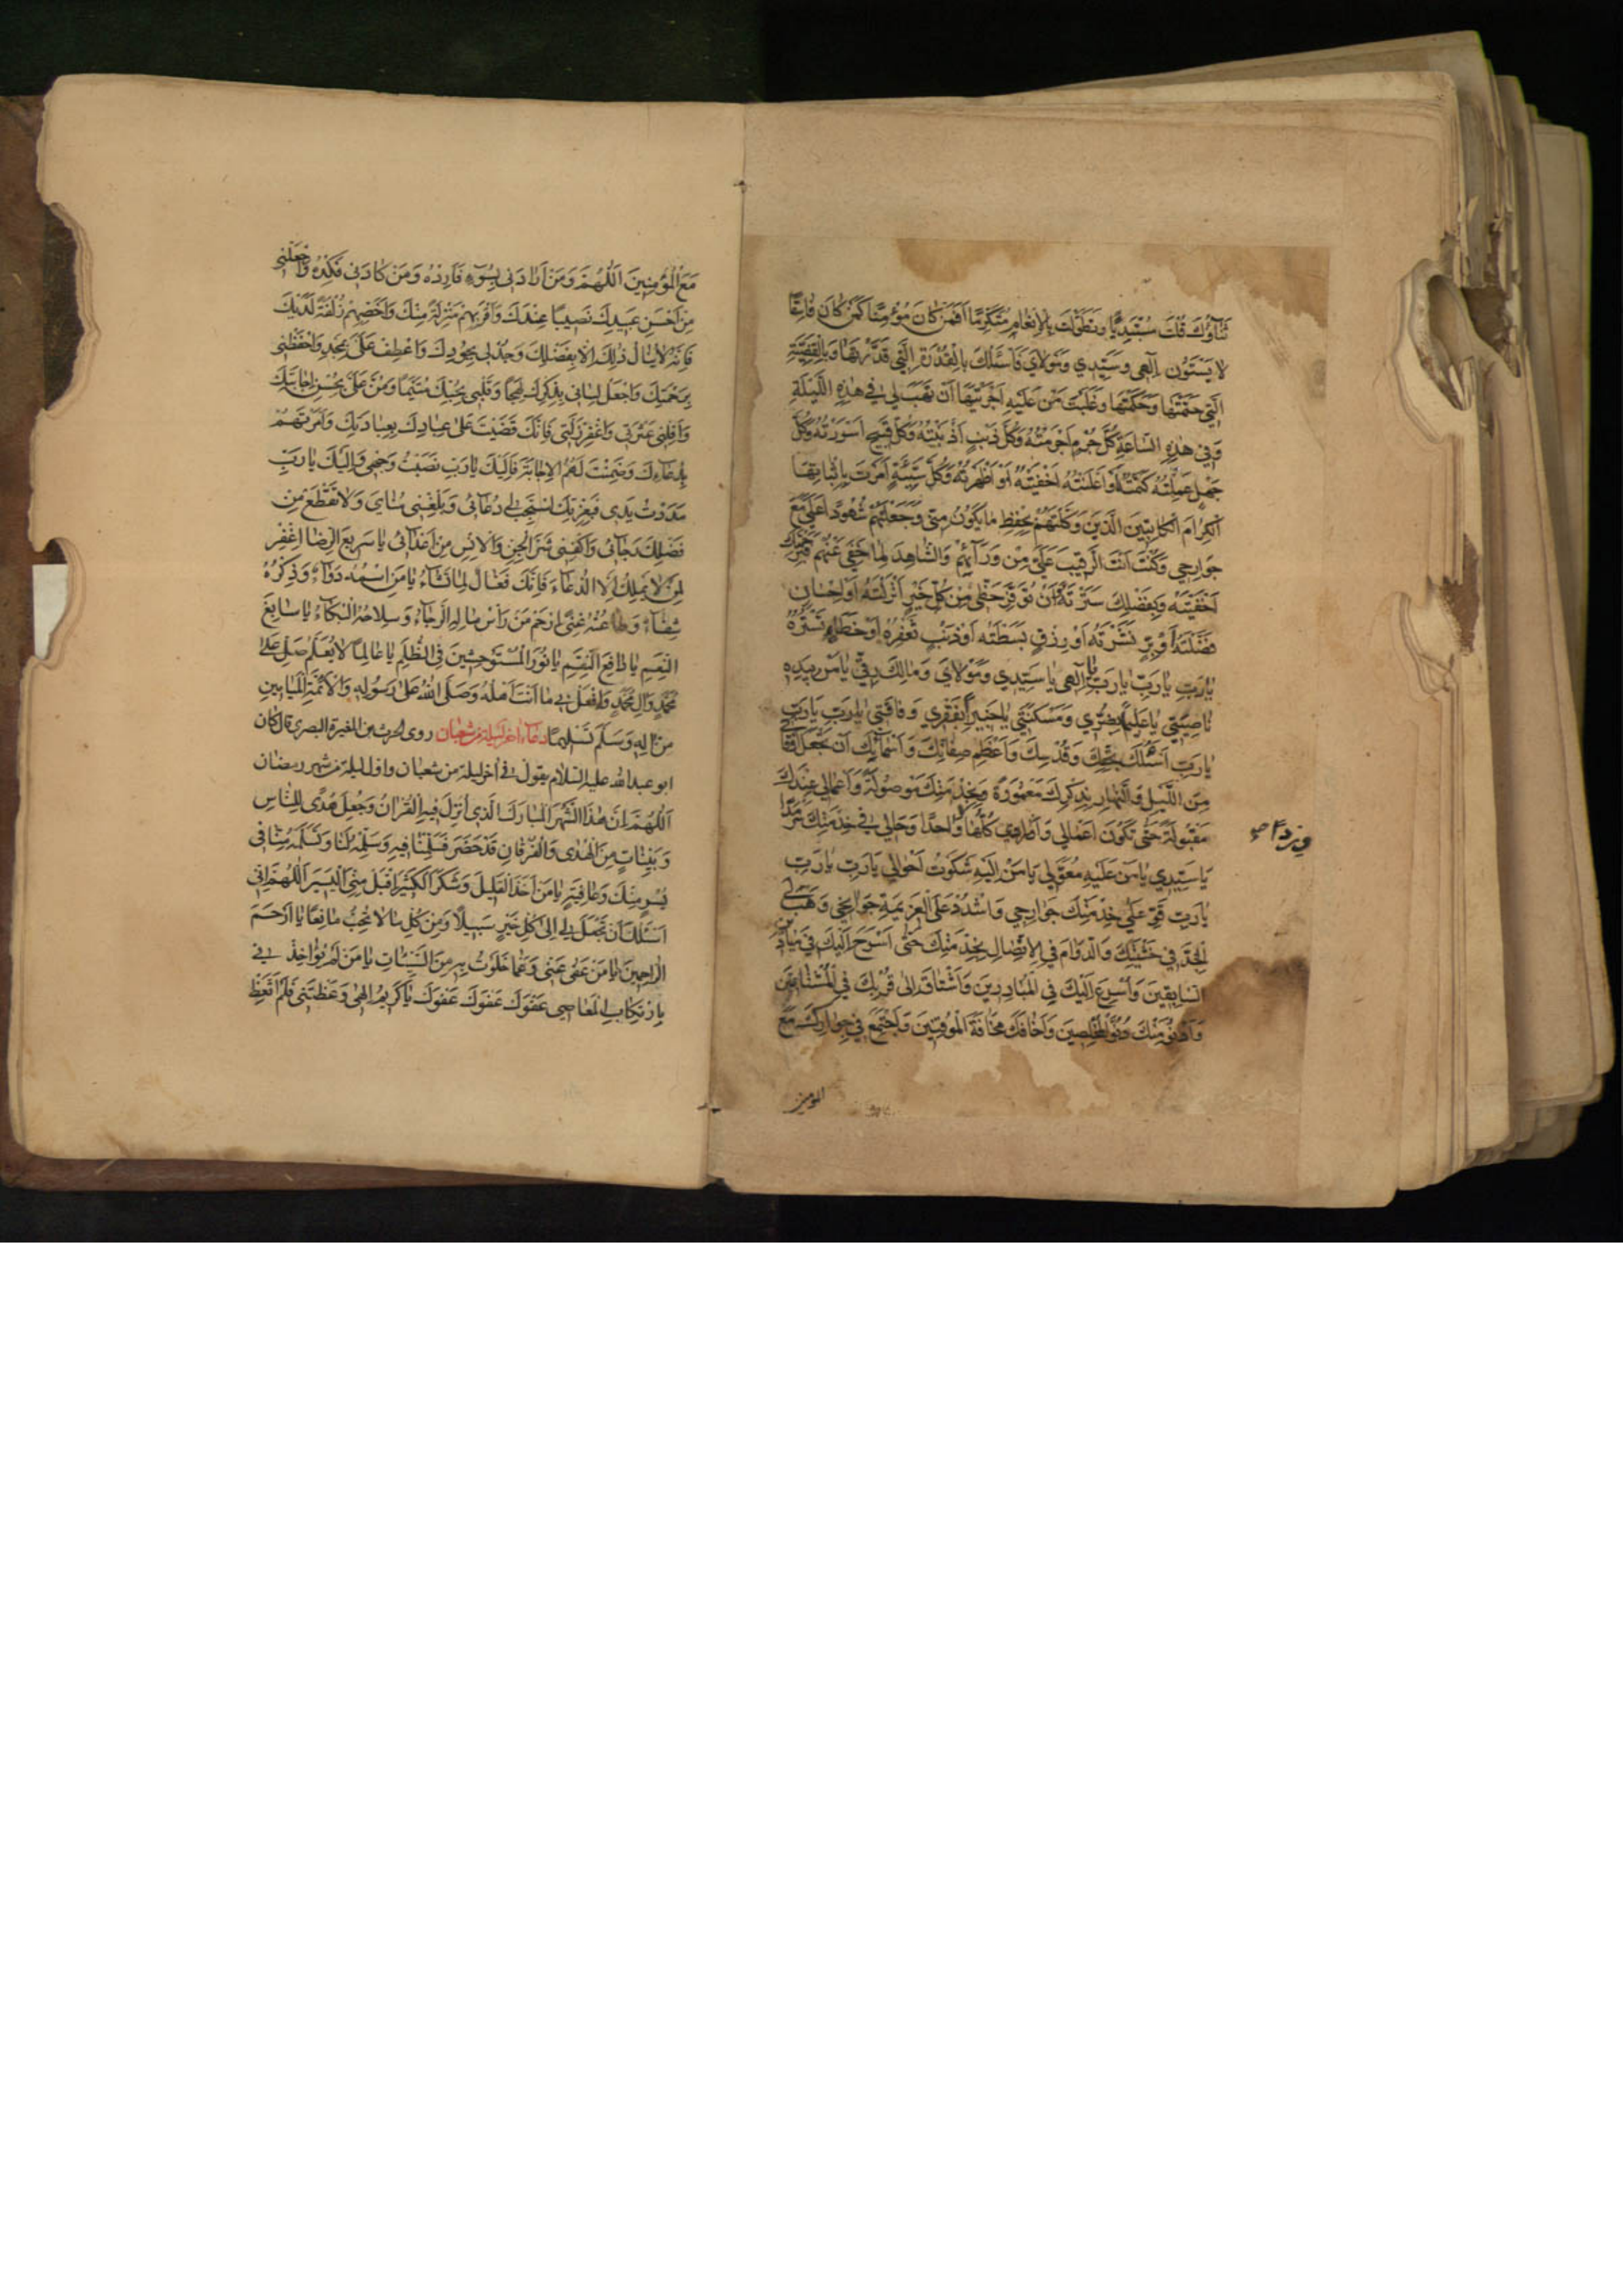 ثَنَاؤُكَ قُلْتَ مُبْتَدِئًا وَتَطَوَّلْتَ بِالْإِنْعَامِ مُتَكَرِّمًا أَفَمَنْ كَانَ مُؤْمِنًا كَمَنْ كَانَ فَاسِقًا
لَا يَسْتَوُونَ إِلٰهِي وَسَيِّدِي وَمَوْلَايَ فَأَسْئَلُكَ بِالْقُدْرَةِ الَّتِي قَدَّرْتَهَا وَبِالْقَضِيَّةِ
الَّتِي حَتَمْتَهَا وَحَكَمْتَهَا وَغَلَبْتَ مَنْ عَلَيْهِ أَجْرَيْتَهَا أَنْ تَهَبَ لِي فِي هٰذِهِ اللَّيْلَةِ
وَفِي هٰذِهِ السَّاعَةِ كُلَّ جُرْمٍ أَجْرَمْتُهُ وَكُلَّ ذَنْبٍ أَذْنَبْتُهُ وَكُلَّ قَبِيحٍ أَسْرَرْتُهُ وَكُلَّ
جَهْلٍ عَمِلْتُهُ كَتَمْتُهُ أَوْ أَعْلَنْتُهُ أَخْفَيْتُهُ أَوْ أَظْهَرْتُهُ وَكُلَّ سَيِّئَةٍ أَمَرْتَ بِإِثْبَاتِهَا
الْكِرَامَ الْكَاتِبِينَ الَّذِينَ وَكَّلْتَهُمْ بِحِفْظِ مَا يَكُونُ مِنِّي وَجَعَلْتَهُمْ شُهُودًا عَلَيَّ مَعَ
جَوَارِحِي وَكُنْتَ أَنْتَ الرَّقِيبَ عَلَيَّ مِنْ وَرَائِهِمْ وَالشَّاهِدَ لِمَا خَفِيَ عَنْهُمْ فَبِرَحْمَتِكَ
أَخْفَيْتَهُ وَبِفَضْلِكَ سَتَرْتَهُ وَأَنْ تُوَفِّرَ حَظِّي مِنْ كُلِّ خَيْرٍ أَنْزَلْتَهُ أَوْ إِحْسَانٍ
فَضَّلْتَهُ أَوْ بِرٍّ نَشَرْتَهُ أَوْ رِزْقٍ بَسَطْتَهُ أَوْ ذَنْبٍ تَغْفِرُهُ أَوْ خَطَإٍ تَسْتُرُهُ
يَا رَبِّ يَا رَبِّ يَا رَبِّ يَا إِلٰهِي يَا سَيِّدِي وَمَوْلَايَ وَمَالِكَ رِقِّي يَا مَنْ بِيَدِهِ
نَاصِيَتِي يَا عَلِيمًا بِضُرِّي وَمَسْكَنَتِي يَا خَبِيرًا بِفَقْرِي وَفَاقَتِي يَا رَبِّ يَا رَبِّ
يَا رَبِّ أَسْئَلُكَ بِحَقِّكَ وَقُدْسِكَ وَأَعْظَمِ صِفَاتِكَ وَأَسْمَائِكَ أَنْ تَجْعَلَ أَوْقَاتِي
مِنَ اللَّيْلِ وَالنَّهَارِ بِذِكْرِكَ مَعْمُورَةً وَبِخِدْمَتِكَ مَوْصُولَةً وَأَعْمَالِي عِنْدَكَ
مَقْبُولَةً حَتَّى تَكُونَ أَعْمَالِي وَأَوْرَادِي كُلُّهَا وِرْدًا وَاحِدًا وَحَالِي فِي خِدْمَتِكَ سَرْمَدًا
يَا سَيِّدِي يَا مَنْ عَلَيْهِ مُعَوَّلِي يَا مَنْ إِلَيْهِ شَكَوْتُ أَحْوَالِي يَا رَبِّ يَا رَبِّ
يَا رَبِّ قَوِّ عَلَى خِدْمَتِكَ جَوَارِحِي وَاشْدُدْ عَلَى الْعَزِيمَةِ جَوَانِحِي وَهَبْ لِيَ
الْجِدَّ فِي خَشْيَتِكَ وَالدَّوَامَ فِي الِاتِّصَالِ بِخِدْمَتِكَ حَتَّى أَسْرَحَ إِلَيْكَ فِي مَيَادِينِ
السَّابِقِينَ وَأُسْرِعَ إِلَيْكَ فِي الْمُبَادِرِينَ وَأَشْتَاقَ إِلَى قُرْبِكَ فِي الْمُشْتَاقِينَ
وَأَدْنُوَ مِنْكَ دُنُوَّ الْمُخْلِصِينَ وَأَخَافَكَ مَخَافَةَ الْمُوقِنِينَ وَأَجْتَمِعَ فِي جِوَارِكَ مَعَ
المؤمنين
مَعَ الْمُؤْمِنِينَ اللّٰهُمَّ وَمَنْ أَرَادَنِي بِسُوءٍ فَأَرِدْهُ وَمَنْ كَادَنِي فَكِدْهُ وَاجْعَلْنِي
مِنْ أَحْسَنِ عَبِيدِكَ نَصِيبًا عِنْدَكَ وَأَقْرَبِهِمْ مَنْزِلَةً مِنْكَ وَأَخَصِّهِمْ زُلْفَةً لَدَيْكَ
فَإِنَّهُ لَا يُنَالُ ذٰلِكَ إِلَّا بِفَضْلِكَ وَجُدْ لِي بِجُودِكَ وَاعْطِفْ عَلَيَّ بِمَجْدِكَ وَاحْفَظْنِي
بِرَحْمَتِكَ وَاجْعَلْ لِسَانِي بِذِكْرِكَ لَهِجًا وَقَلْبِي بِحُبِّكَ مُتَيَّمًا وَمُنَّ عَلَيَّ بِحُسْنِ إِجَابَتِكَ
وَأَقِلْنِي عَثْرَتِي وَاغْفِرْ زَلَّتِي فَإِنَّكَ قَضَيْتَ عَلَى عِبَادِكَ بِعِبَادَتِكَ وَأَمَرْتَهُمْ
بِدُعَائِكَ وَضَمِنْتَ لَهُمُ الْإِجَابَةَ فَإِلَيْكَ يَا رَبِّ نَصَبْتُ وَجْهِي وَإِلَيْكَ يَا رَبِّ
مَدَدْتُ يَدِي فَبِعِزَّتِكَ اسْتَجِبْ لِي دُعَائِي وَبَلِّغْنِي مُنَايَ وَلَا تَقْطَعْ مِنْ
فَضْلِكَ رَجَائِي وَاكْفِنِي شَرَّ الْجِنِّ وَالْإِنْسِ مِنْ أَعْدَائِي يَا سَرِيعَ الرِّضَا اغْفِرْ
لِمَنْ لَا يَمْلِكُ إِلَّا الدُّعَاءَ فَإِنَّكَ فَعَّالٌ لِمَا تَشَاءُ يَا مَنِ اسْمُهُ دَوَاءٌ وَذِكْرُهُ
شِفَاءٌ وَطَاعَتُهُ غِنًى ارْحَمْ مَنْ رَأْسُ مَالِهِ الرَّجَاءُ وَسِلَاحُهُ الْبُكَاءُ يَا سَابِغَ
النِّعَمِ يَا دَافِعَ النِّقَمِ يَا نُورَ الْمُسْتَوْحِشِينَ فِي الظُّلَمِ يَا عَالِمًا لَا يُعَلَّمُ صَلِّ عَلَى
مُحَمَّدٍ وَآلِ مُحَمَّدٍ وَافْعَلْ بِي مَا أَنْتَ أَهْلُهُ وَصَلَّى اللّٰهُ عَلَى رَسُولِهِ وَالْأَئِمَّةِ الْمَيَامِينِ
مِنْ آلِهِ وَسَلَّمَ تَسْلِيمًا دعاء اخر ليلة من شعبان روى الحرث بن المغيرة البصري قال كان
ابو عبد الله عليه السلام يقول في اخر ليلة من شعبان واول ليلة من شهر رمضان
اللّٰهُمَّ إِنَّ هٰذَا الشَّهْرَ الْمُبَارَكَ الَّذِي أُنْزِلَ فِيهِ الْقُرْآنُ وَجُعِلَ هُدًى لِلنَّاسِ
وَبَيِّنَاتٍ مِنَ الْهُدَى وَالْفُرْقَانِ قَدْ حَضَرَ فَسَلِّمْنَا فِيهِ وَسَلِّمْهُ لَنَا وَتَسَلَّمْهُ مِنَّا فِي
يُسْرٍ مِنْكَ وَعَافِيَةٍ يَا مَنْ أَخَذَ الْقَلِيلَ وَشَكَرَ الْكَثِيرَ اقْبَلْ مِنِّي الْيَسِيرَ اللّٰهُمَّ إِنِّي
أَسْئَلُكَ أَنْ تَجْعَلَ لِي إِلَى كُلِّ خَيْرٍ سَبِيلًا وَمِنْ كُلِّ مَا لَا تُحِبُّ مَانِعًا يَا أَرْحَمَ
الرَّاحِمِينَ يَا مَنْ عَفَى عَنِّي وَعَمَّا خَلَوْتُ بِهِ مِنَ السَّيِّئَاتِ يَا مَنْ لَمْ يُؤَاخِذْنِي
بِارْتِكَابِ الْمَعَاصِي عَفْوَكَ عَفْوَكَ عَفْوَكَ يَا كَرِيمُ إِلٰهِي وَعَظْتَنِي فَلَمْ أَتَّعِظْ